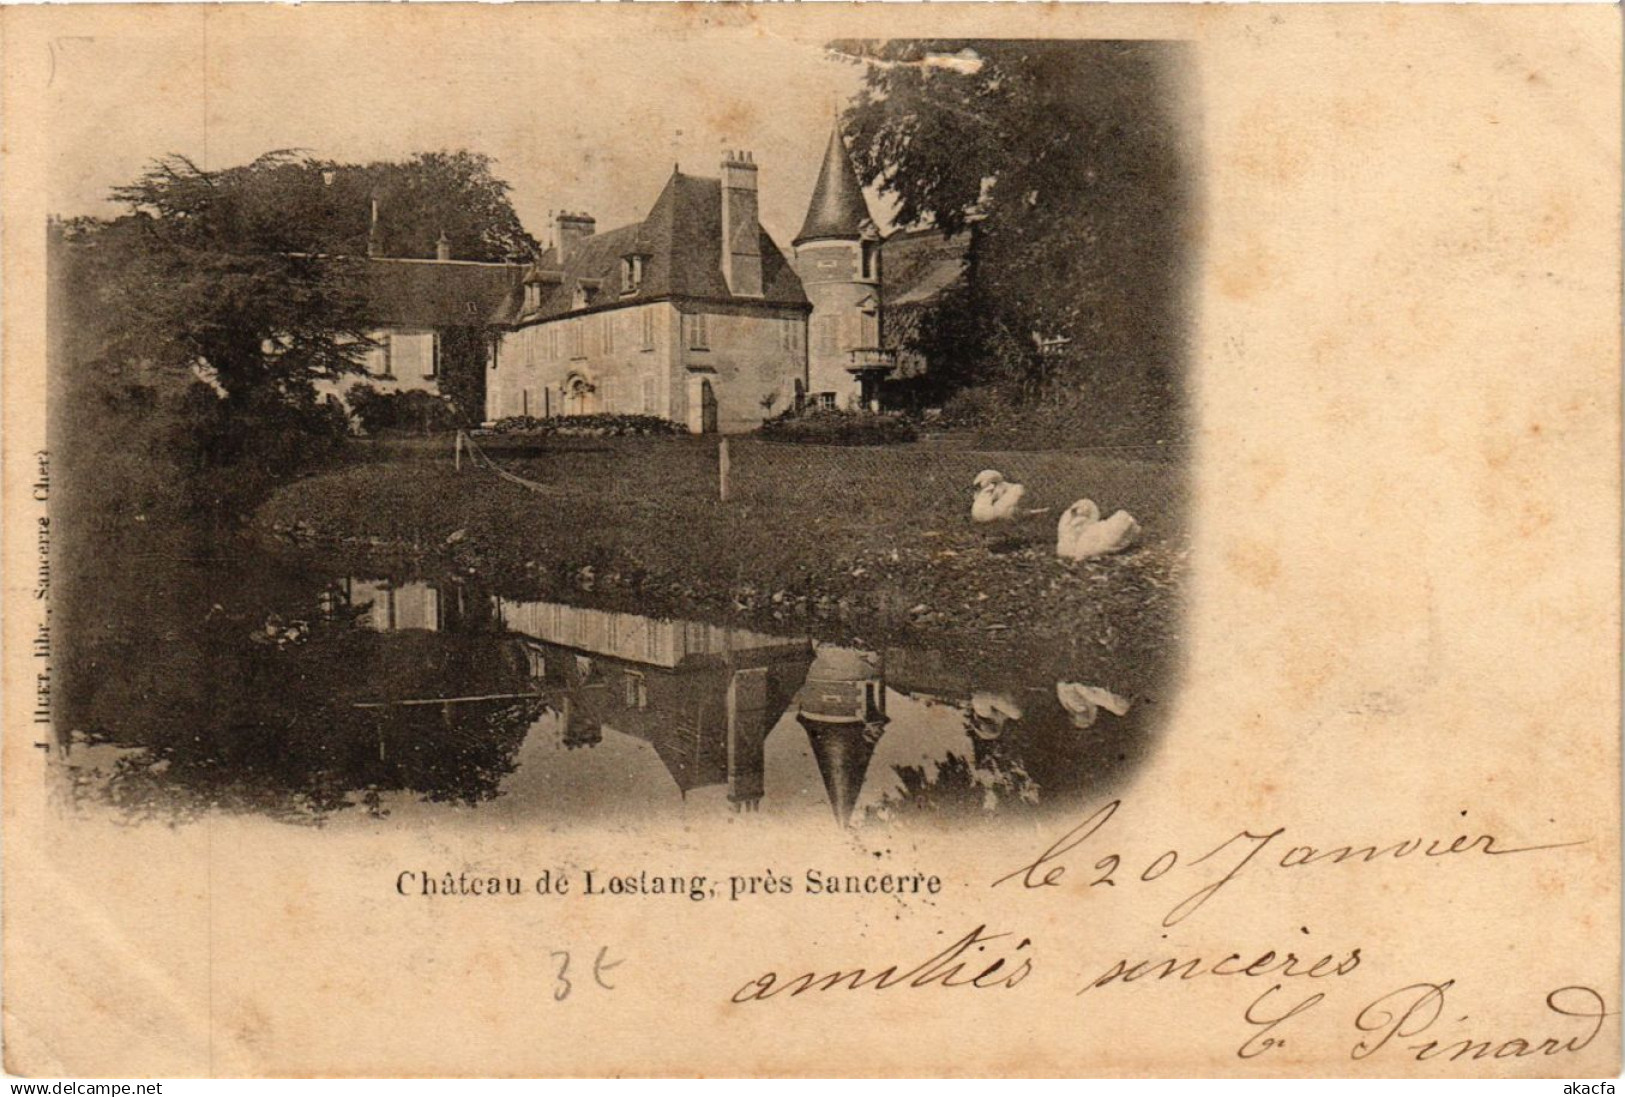 J. HUET, libr., Sancerre Cher)
Château de Lostang, près Sancerre
le 20 Janvier
amitiés sincères
C. Pinard
3€
delcampe.net
akacfa